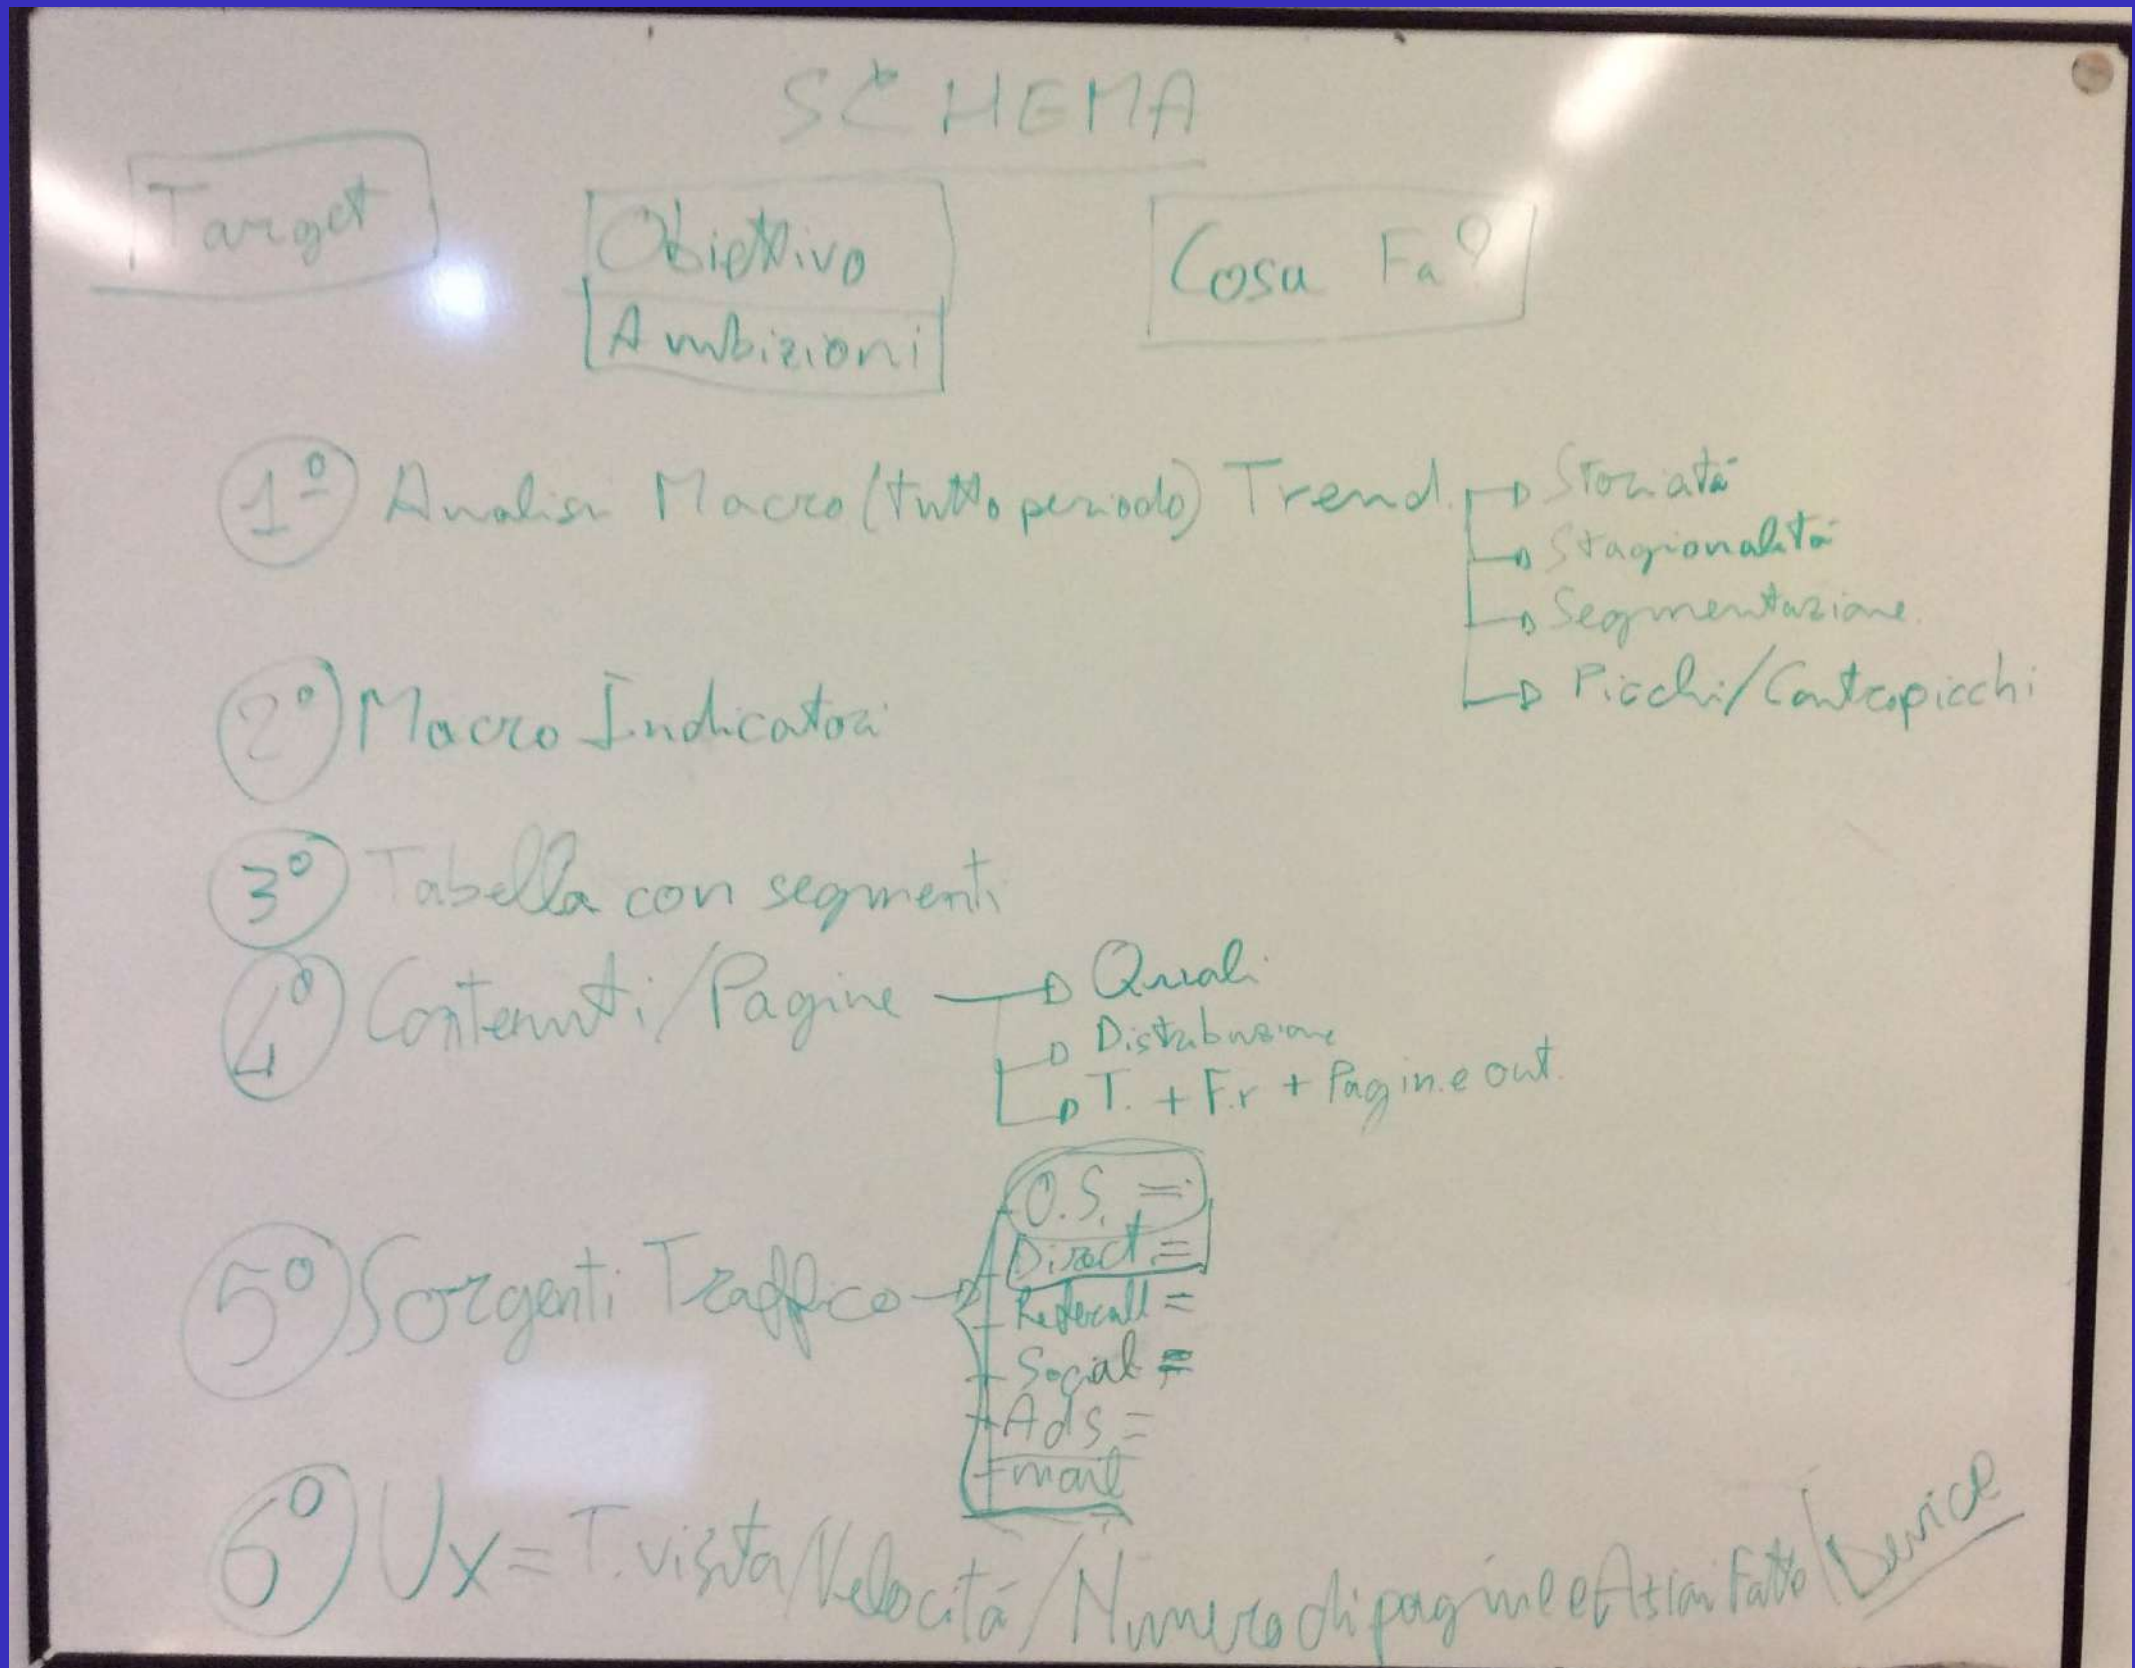 SCHEMA
Target
Obiettivo
Ambizioni
Cosa Fa?
1º Analisi Macro (tutto periodo) Trend.
Storicità
Stagionalità
Segmentazione.
Picchi/Contropicchi
2º Macro Indicatori
3º Tabella con segmenti
4º Contenuti/Pagine
Quali
Distribuzione
T. + F.r + Pag in.e out.
5º Sorgenti Traffico
O.S. =
Direct. =
Referall =
Social =
Ads =
mail
6º Ux = T. visita/Velocità/Numero di pagine e Azioni Fatto/Device